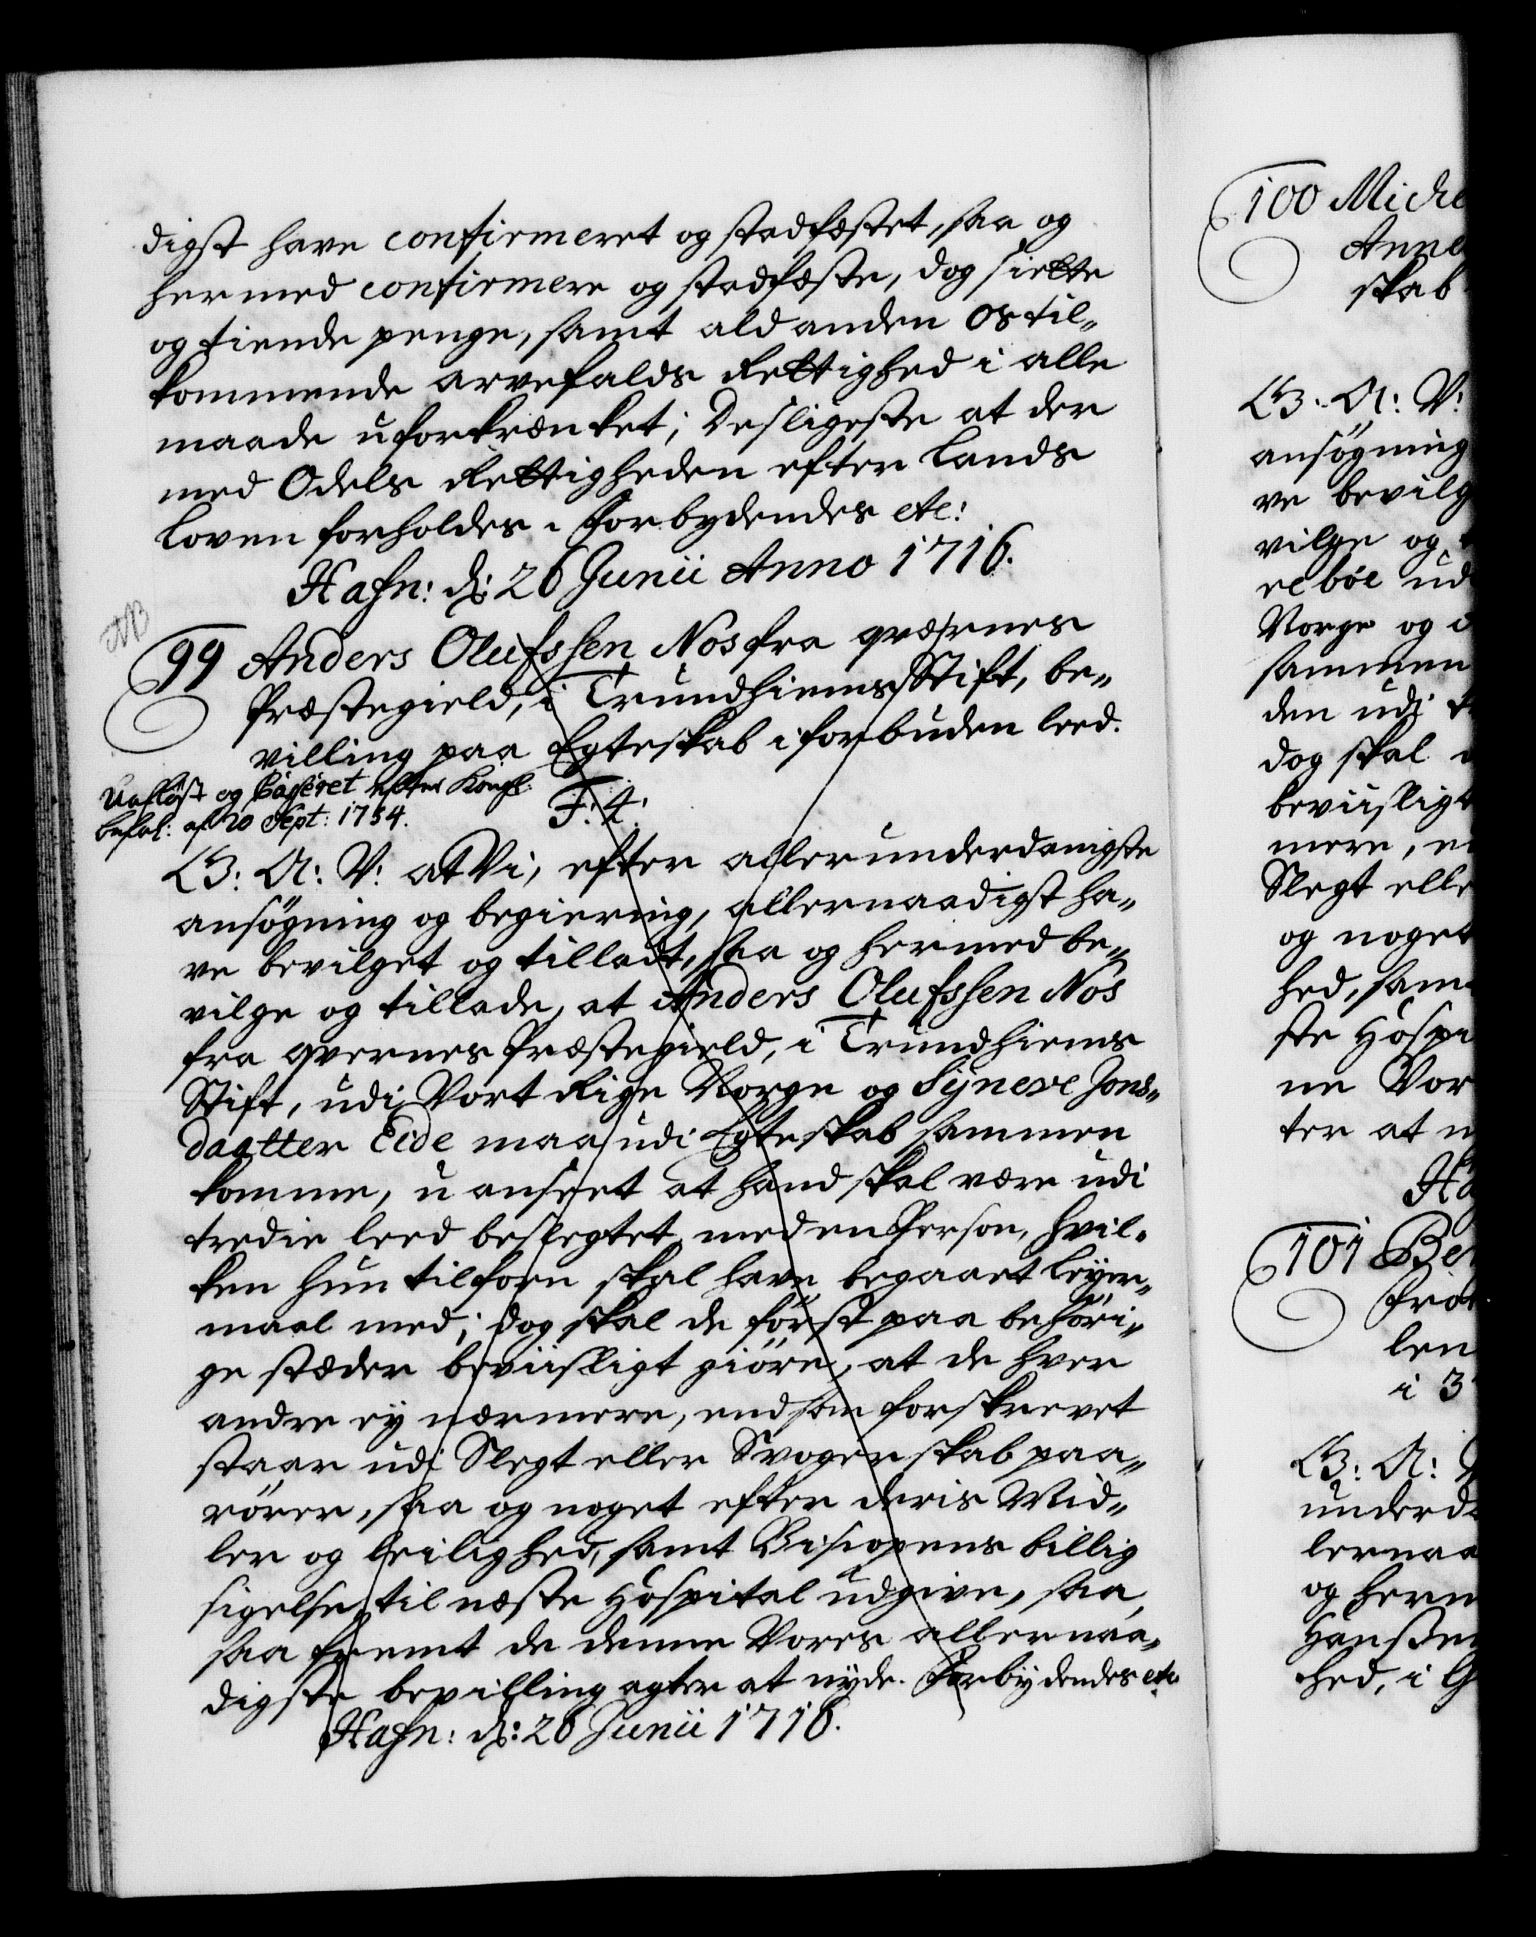 digst have confirmeret og stadfæstet, saa og
hermed confirmere og stadfæste, dog siette
og tiende penge, samt ald anden Os til„
kommende arvefalds Rettighed i alle
maade uforkrænket; Desligeste at der
med Odels Rettigheden efter Lands
Loven forholdes. Forbydendes etc:
Hafn: d: 26 Junii Anno 1716.
NB
99 Anders Olufssen Nos fra qværnes
Præstegield, i Trundhiems Stift, be„
villing paa Egteskab i forbuden leed.
Uafløst og Casseret efter Kongl:
befal: af 20 Sept: 1754.
F: 4:
G: A: V: at Vi, efter allerunderdanigste
ansøgning og begiering, allernaadigst ha„
ve bevilget og tilladt, saa og hermed be„
vilge og tillade, at Anders Olufssen Nos
fra qvernes Præstegield, i Trundhiems
Stift, udi Vort Rige Norge og Sÿneve Jons„
daatter Eide maa udi Egteskab sammen
komme, u anseet at hand skal være udi
tredie leed beslegtet med en Person, hvil„
ken hun tilforn skal have begaaet leÿer„
maal med; dog skal de først paa behöri„
ge stæder beviisligt giøre, at de hver
andre eÿ nærmere, end som forskrevet
staar udi Slegt eller Svogerskab paa„
rører, saa og noget efter deris Mid„
ler og leilighed, samt Biscopens billig
sigelse til næste Hospital udgive, saa,
saa fremt de denne Vores allernaa„
digste bevilling agter at nyde. Forbydendes etc
Hafn: d: 26 Junii 1716.
100 Miche
Anne
skab
G: A: V:
ansøgning
ve bevilg
vilge og
reböe ud
Norge og
sammen
den udi
dog skal
beviisligt
mere, en
Slegt elle
og noget
hed, sam
ste Hospi
ne Vor
ter at n
Ha
101 Be
frø
len
i 3
G: A:
underd
lernaa
og herm
Hanssen
hed, i